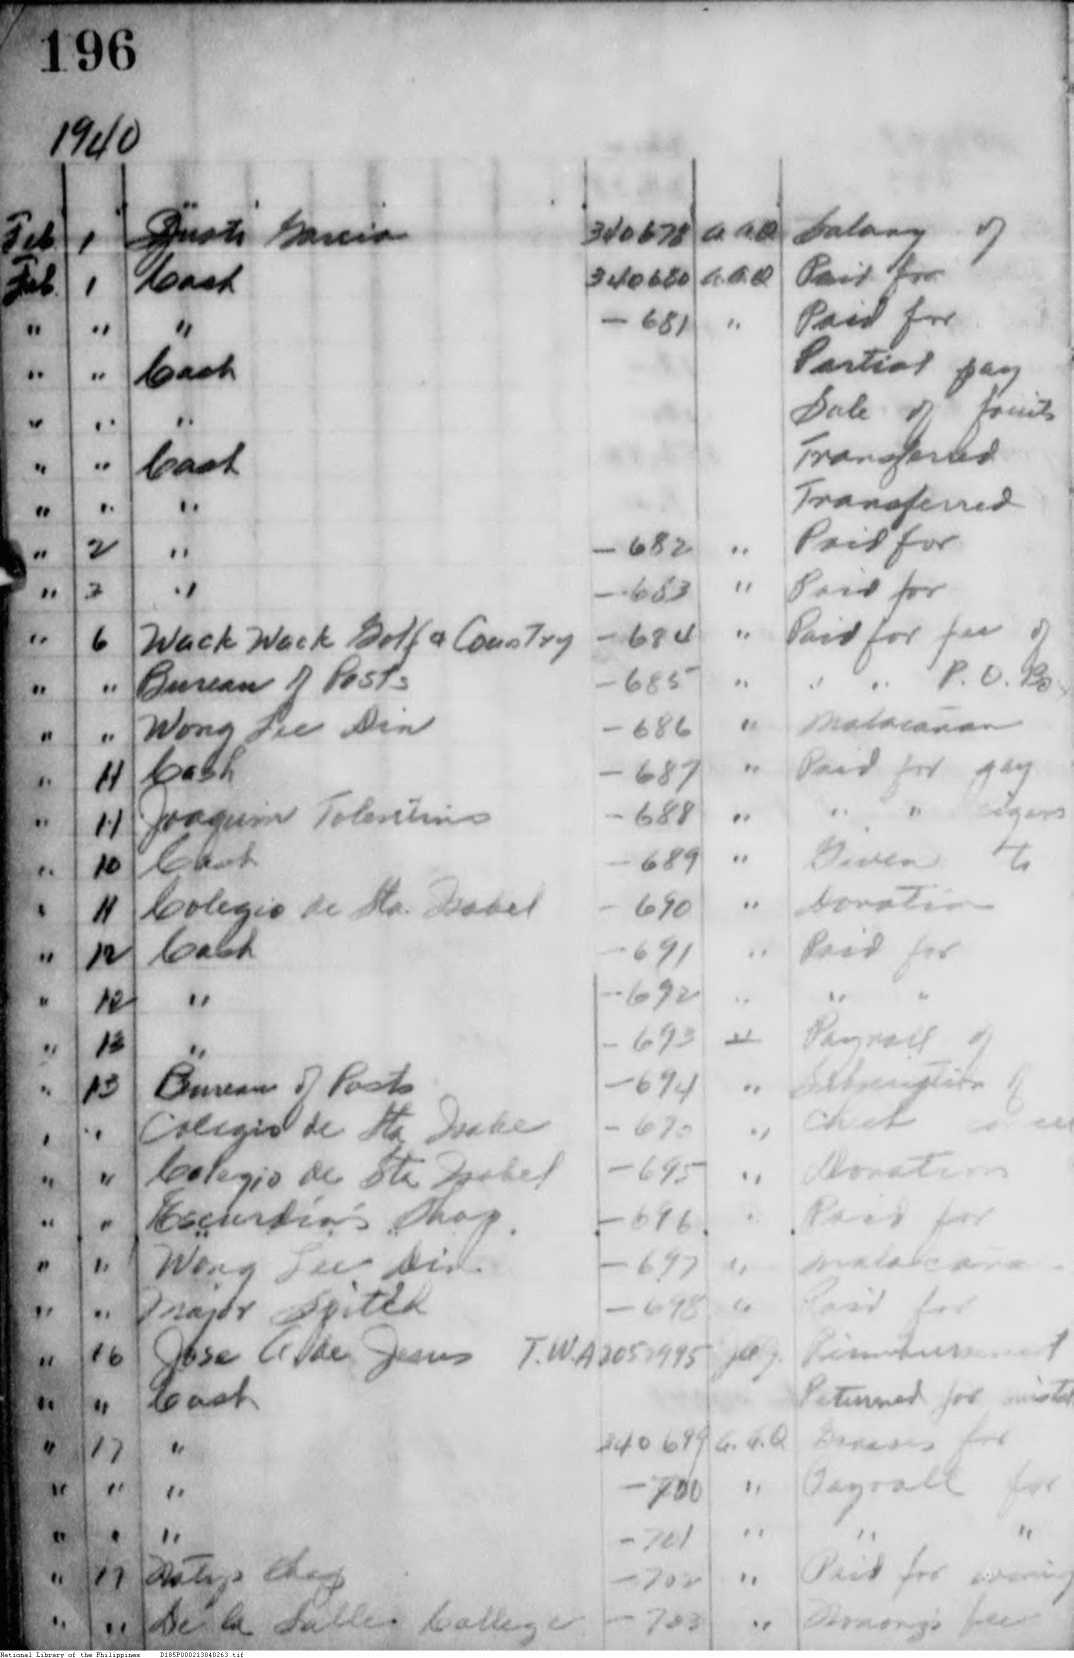 196
1940
Feb 1 Justi Garcia 340678 A.A.Q Salary of
Feb. 1 Cash 340680 A.A.Q Paid for
" " " — 681 " Paid for
" " Cash Partial pay
" " " Sale of fruits
" " Cash Transferred
" " " Transferred
" 2 " — 682 " Paid for
" 3 " — 683 " Paid for
" 6 Wack Wack Golf & Country — 684 " Paid for fee of
" " Bureau of Posts — 685 " " " P. O. Bo
" " Wong Lee Din — 686 " Malacañan
" 11 Cash — 687 " Paid for gay
" 11 Joaquin Tolentino — 688 " " " cigars
" 10 Cash — 689 " Given to
" 11 Colegio de Sta. Isabel — 690 " Donation
" 12 Cash — 691 " Paid for
" 12 " — 692 " " "
" 13 " — 693 " Payroll of
" 13 Bureau of Posts — 694 " Subscription of
" " Colegio de Sta Isabe — 690 " Check
" " Colegio de Sta Isabel — 695 " Donation
" " Escurdia's Shop. — 696 " Paid for
" " Wong Lee Din — 697 " Malacaña
" " Major Speth — 698 " Paid for
" 16 Jose A. de Jesus T.W.A 2051995 Reimbursement
" " Cash Returned for
" 17 " 340699 A.A.Q for
" " " — 700 " Payroll for
" " " — 701 " " "
" 17 Shop — 702 " Paid for
" " De la Salle College — 703 " fee
National Library of the Philippines D185P000213840263.tif